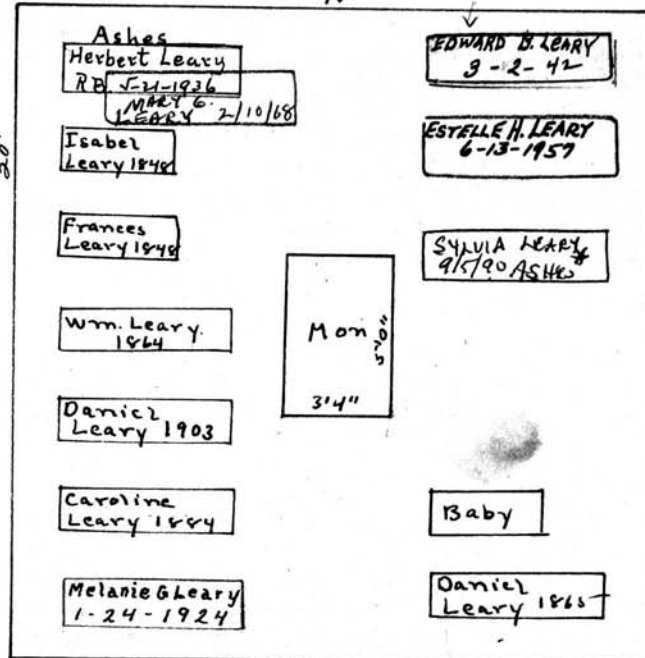 Ashes
Herbert Leary
RB 5-21-1936
MARY G.
LEARY 2/10/68
Isabel
Leary 1848
Frances
Leary 1848
Wm. Leary.
1864
Daniel
Leary 1903
Caroline
Leary 1884
Melanie G Leary
1-24-1924
20'
Mon
5'0"
3'4"
EDWARD D. LEARY
3-2-42
ESTELLE H. LEARY
6-13-1957
SYLVIA LEARY
9/5/90 ASHES
Baby
Daniel
Leary 1865